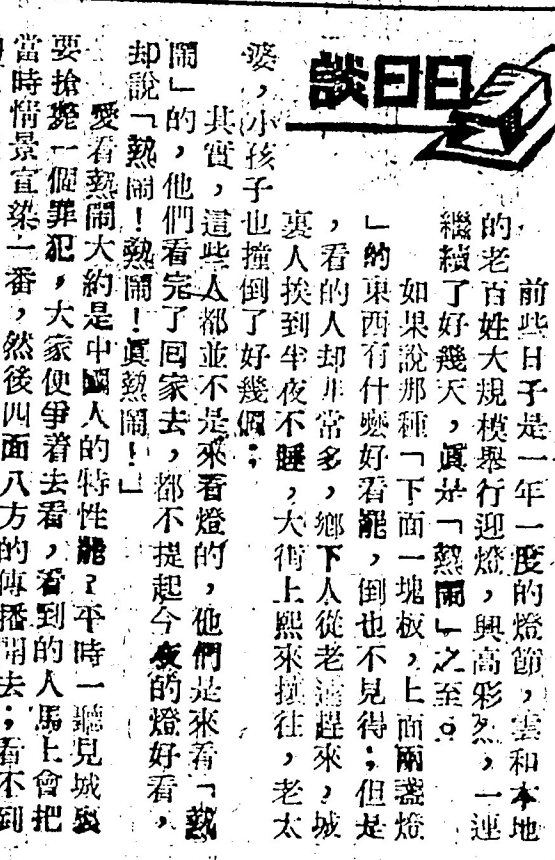 日日談
前些日子是一年一度的燈節,雲和本地
的老百姓大規模舉行迎燈,興高彩烈,一連
繼續了好幾天,眞是「熱鬧」之至。
如果說那種「下面一塊板,上面兩盞燈
」的東西有什麽好看罷,倒也不見得;但是
,看的人却非常多,鄉下人從老遠趕來,城
裏人挨到半夜不睡,大街上熙來攘往,老太
婆,小孩子也撞倒了好幾個;
其實,這些人都並不是來看燈的,他們是來看「熱
鬧」的,他們看完了回家去,都不提起今夜的燈好看,
却說「熱鬧!熱鬧!眞熱鬧!」
愛看熱鬧大約是中國人的特性罷?平時一聽見城裏
要搶斃一個罪犯,大家便爭着去看,看到的人馬上會把
當時情景宣染一番,然後四面八方的傳播開去;看不到